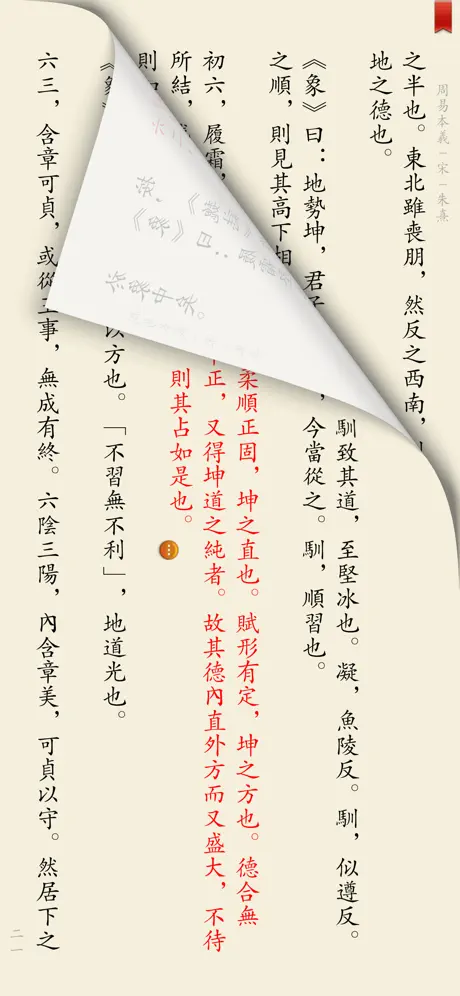 周易本義－宋－朱熹
之半也。東北雖喪朋，然反之西南，
地之德也。
馴致其道，至堅冰也。凝，魚陵反。馴，似遵反。
《象》曰：地勢坤，君子
，今當從之。馴，順習也。
之順，則見其高下相
柔順正固，坤之直也。賦形有定，坤之方也。德合無
初六，履霜，
正，又得坤道之純者。故其德內直外方而又盛大，不待
所結，
則其占如是也。
則
《象》
以方也。「不習無不利」，地道光也。
六三，含章可貞，或從
事，無成有終。六陰三陽，內含章美，可貞以守。然居下之
二一